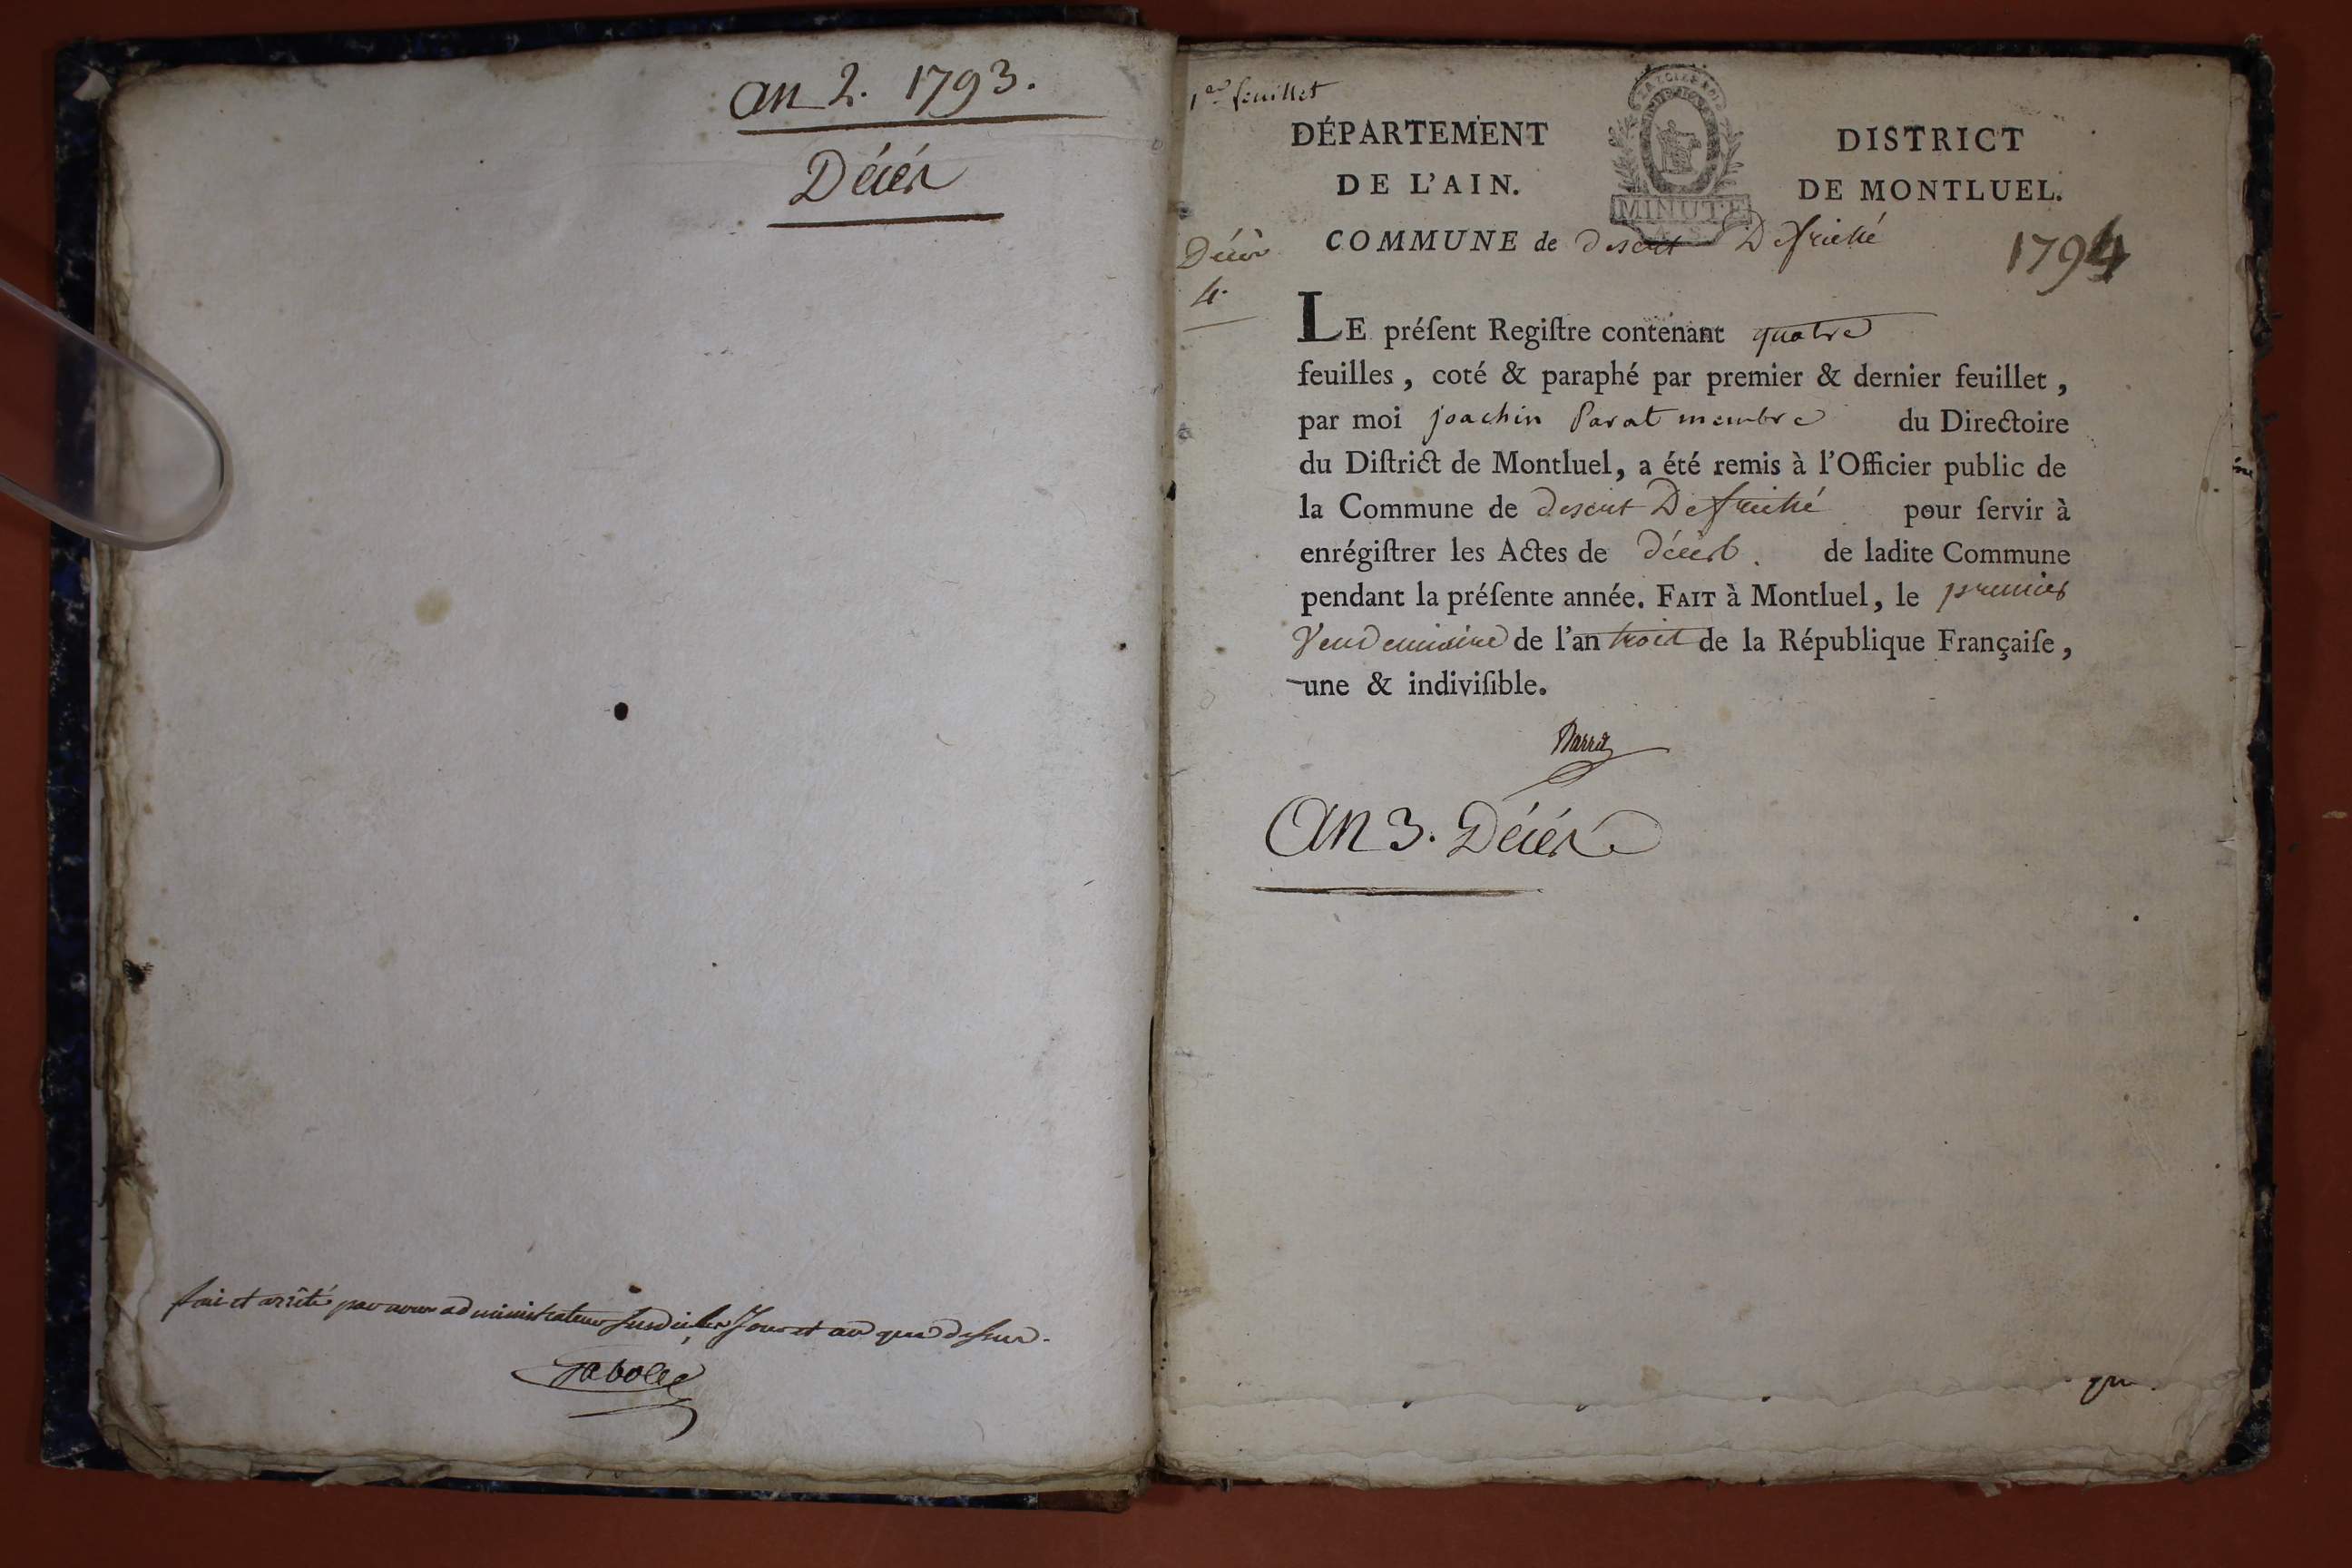 an 2. 1793.
Décés
fai et arrêté par nous administrateur susdit les jour et an que dessus.
1er feuillet
DÉPARTEMENT
DE L'AIN.
MINUTE
DISTRICT
DE MONTLUEL.
COMMUNE de desert Defriché
1794
Décès
4.
LE préſent Regiſtre contenant quatre
feuilles, coté & paraphé par premier & dernier feuillet,
par moi joachin Parat membre du Directoire
du Diſtrict de Montluel, a été remis à l'Officier public de
la Commune de desert Defriché pour ſervir à
enrégiſtrer les Actes de décès. de ladite Commune
pendant la préſente année. FAIT à Montluel, le premier
Vendemiaire de l'an trois de la République Françaiſe,
une & indiviſible.
An 3. Décés